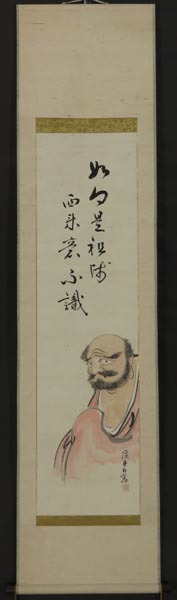 如何是祖師
西来意不識